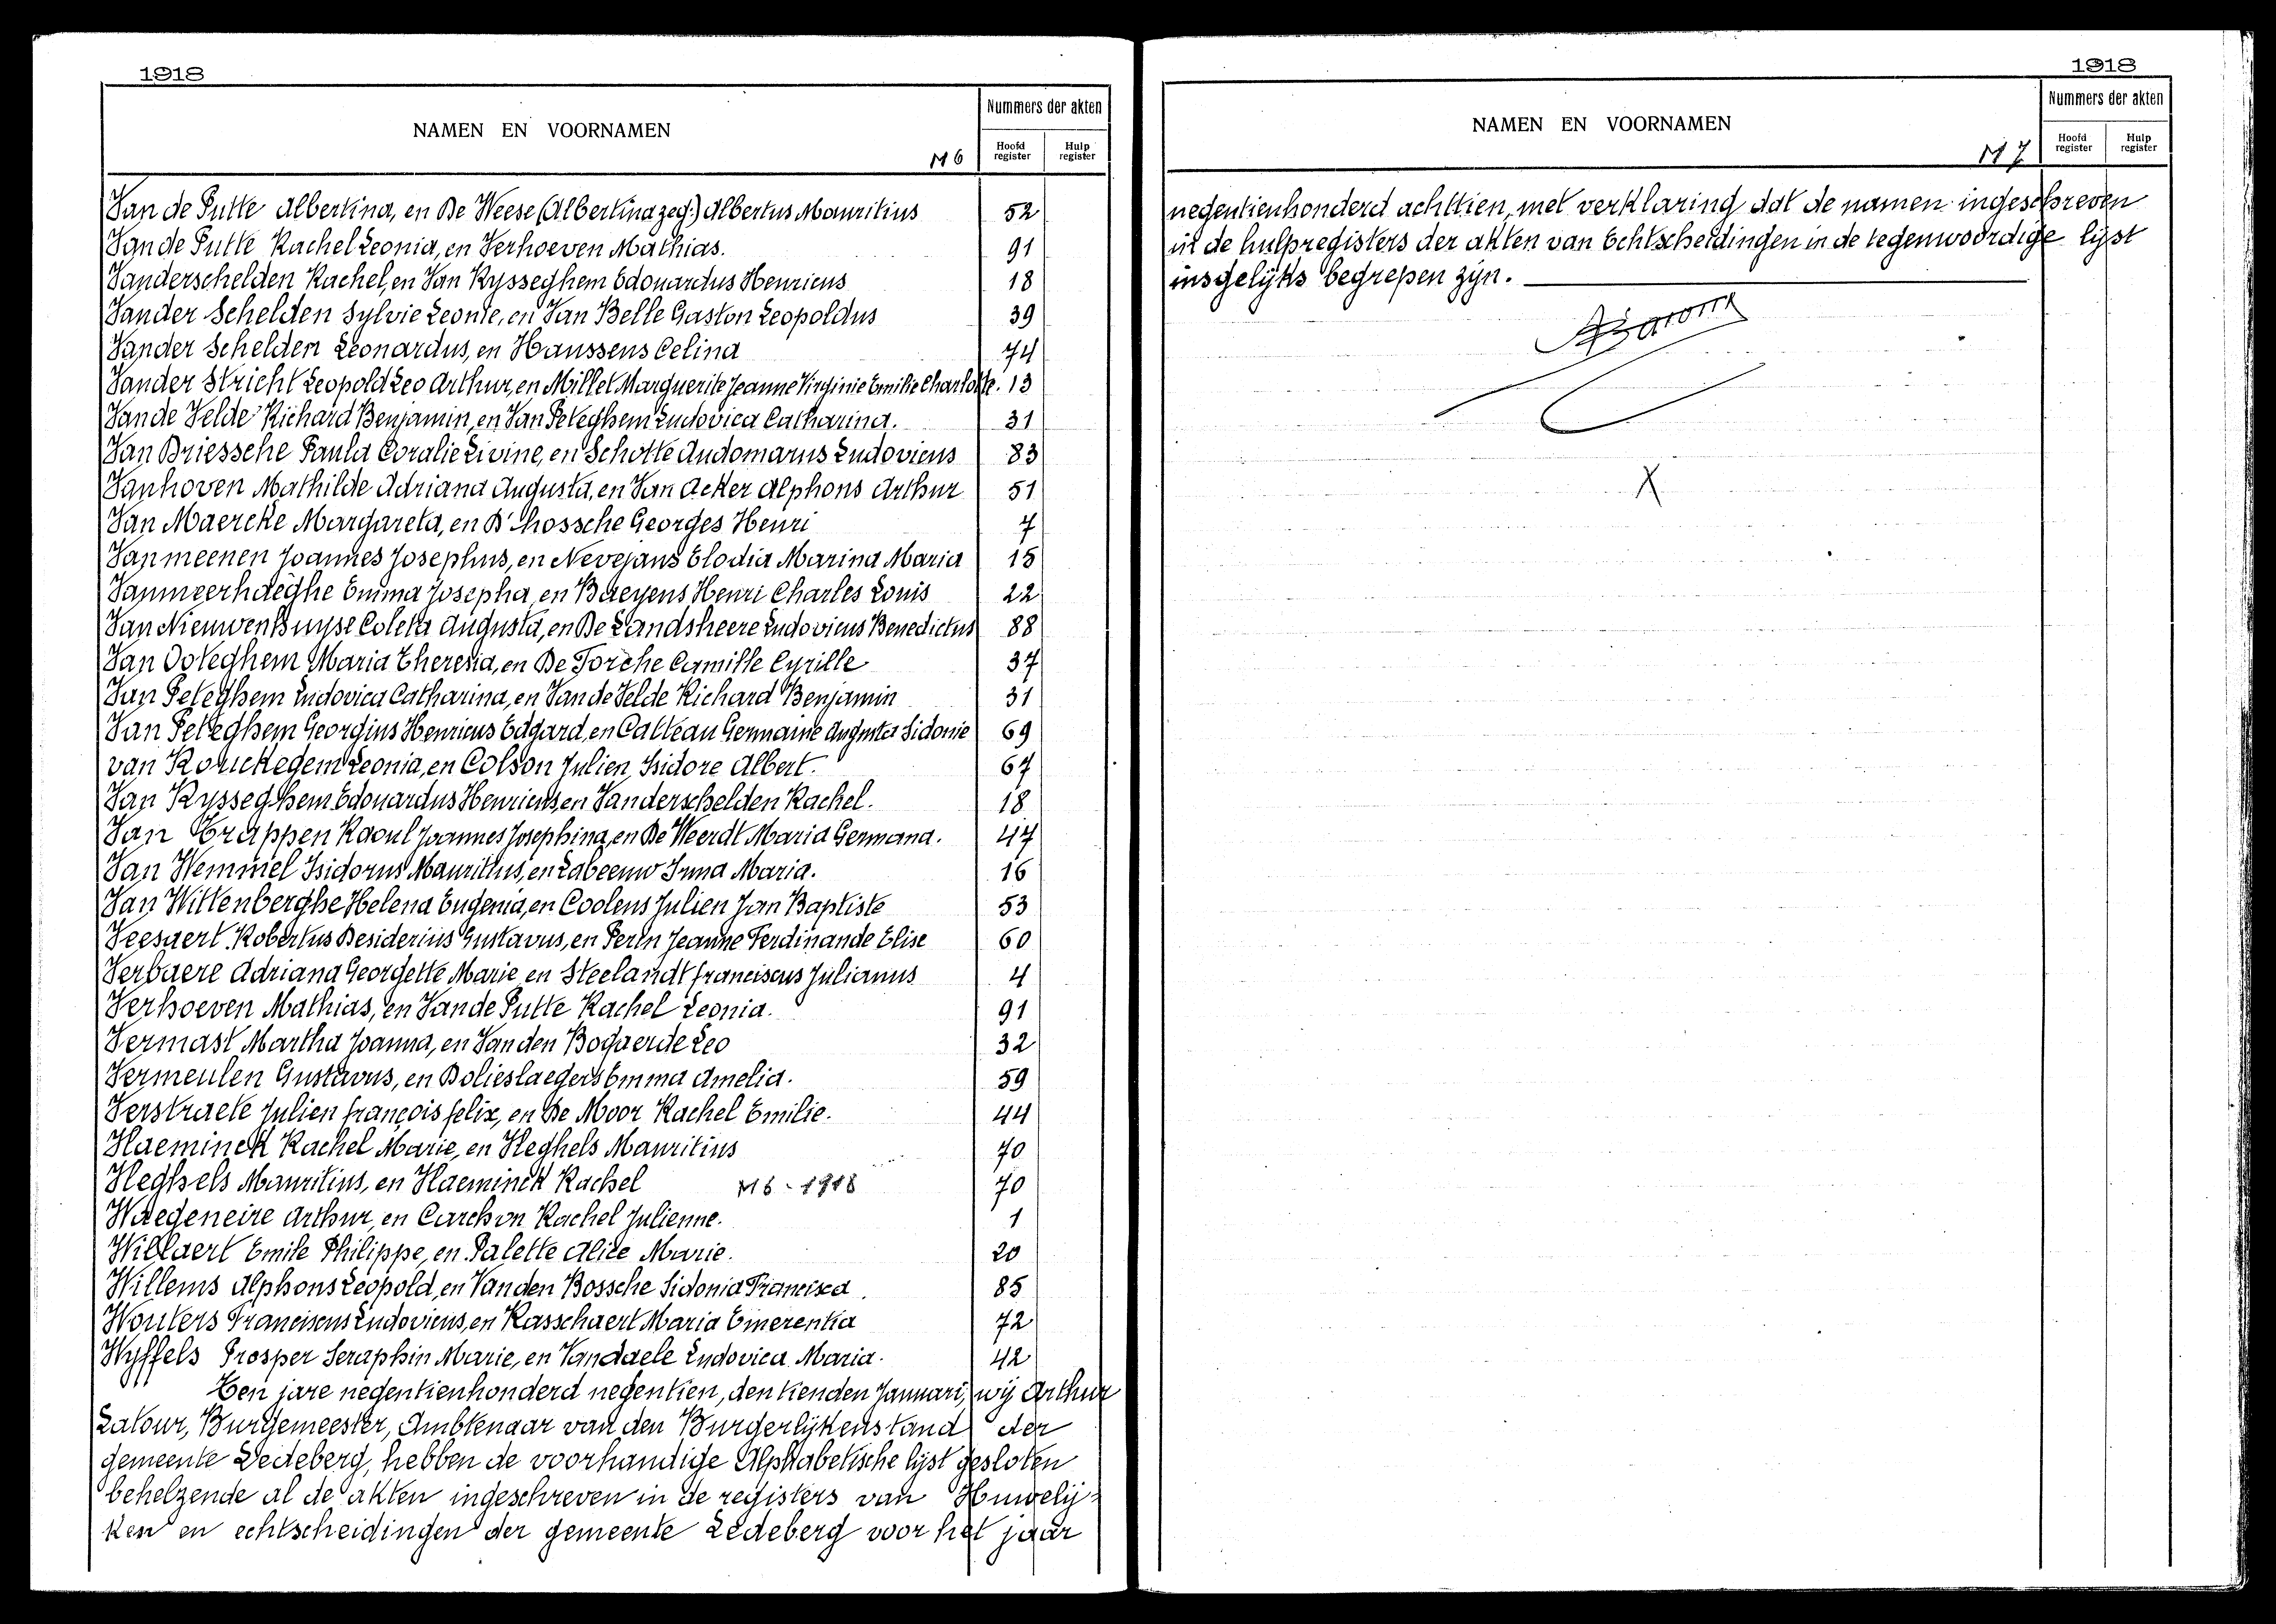 1918
NAMEN EN VOORNAMEN
M 6
Nummers der akten
Hoofd register
Hulp register
Van de Putte Albertina, en De Weese (Albertina zeg:) Albertus Mauritius 52
Van de Putte Rachel Leonia, en Verhoeven Mathias. 91
Vanderschelden Rachel, en Van Rysseghem Edouardus Henricus 18
Vander Schelden Sylvie Leonie, en Van Belle Gaston Leopoldus 39
Vander Schelden Leonardus, en Haussens Celina 74
Vander Stricht Leopold Leo Arthur, en Millet Marguerite Jeanne Virginie Emilie Charlotte. 13
Van de Velde Richard Benjamin, en Van Peteghem Ludovica Catharina. 31
Van Driessche Paula Coralie Livine, en Schotte Audomarus Ludovicus 83
Vanhoven Mathilde Adriana Augusta, en Van Acker Alphons Arthur 51
Van Maercke Margareta, en D'hossche Georges Henri 7
Vanmeenen Joannes Josephus, en Nevejans Elodia Marina Maria 15
Vanmeerhaeghe Emma Josepha, en Baeyens Henri Charles Louis 22
Van Nieuwenhuyse Coleta Augusta, en De Landsheere Ludovicus Benedictus 88
Van Ooteghem Maria Theresia, en De Torche Camille Cyrille 37
Van Peteghem Ludovica Catharina, en Van de Velde Richard Benjamin 31
Van Peteghem Georgius Henricus Edgard, en Catteau Germaine Augusta Sidonie 69
van Rouckegem Leonia, en Colson Julien Isidore Albert. 67
Van Rysseghem Edouardus Henricus, en Vanderschelden Rachel. 18
Van Trappen Raoul Joannes Josephina, en De Weerdt Maria Germana. 47
Van Wemmel Isidorus Mauritius, en Labeeuw Irma Maria. 16
Van Wittenberghe Helena Eugenia, en Coolens Julien Jan Baptiste 53
Veesaert Robertus Desiderius Gustavus, en Perin Jeanne Ferdinande Elise 60
Verbaere Adriana Georgette Marie, en Steelandt franciscus Julianus 4
Verhoeven Mathias, en Van de Putte Rachel Leonia. 91
Vermast Martha Joanna, en Van den Bogaerde Leo 32
Vermeulen Gustavus, en Bolieslaegers Emma Amelia. 59
Verstraete Julien françois felix, en De Moor Rachel Emilie. 44
Vlaeminck Rachel Marie, en Vleghels Mauritius 70
Vleghels Mauritius, en Vlaeminck Rachel M 6 - 1918 70
Waegeneire Arthur, en Carchon Rachel Julienne. 1
Willaert Emile Philippe, en Palette Alice Marie. 20
Willems Alphons Leopold, en Van den Bossche Sidonia Francisca. 85
Wouters Franciscus Ludovicus, en Rasschaert Maria Emerentia 72
Wyffels Prosper Seraphin Marie, en Vandaele Ludovica Maria. 42
Ten jare negentienhonderd negentien, den tienden Januari, wij Arthur
Latour, Burgemeester, Ambtenaar van den Burgerlijkenstand der
gemeente Ledeberg, hebben de voorhandige Alphabetische lijst gesloten
behelzende al de akten ingeschreven in de registers van Huwelij-
ken en echtscheidingen der gemeente Ledeberg voor het jaar
1918
NAMEN EN VOORNAMEN
M 7
Nummers der akten
Hoofd register
Hulp register
negentienhonderd achttien, met verklaring dat de namen ingeschreven
in de hulpregisters der akten van Echtscheidingen in de tegenwoordige lijst
insgelijks begrepen zijn.
X